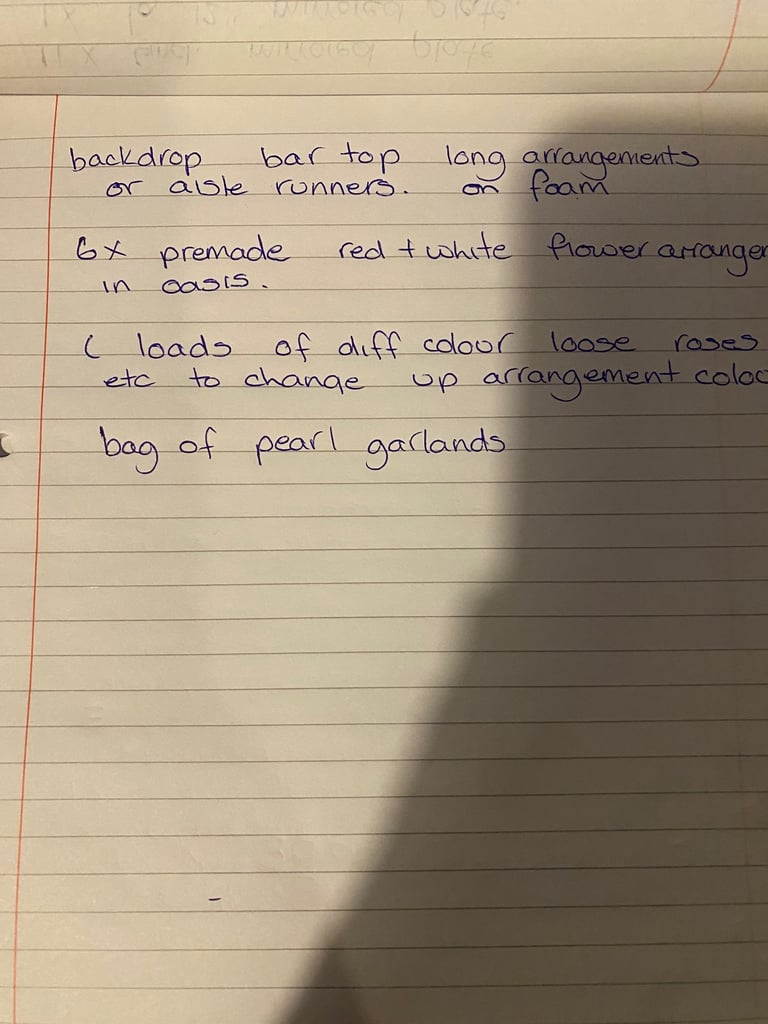 1x 12" mirrored plate
11 x mirrored plate
backdrop bar top long arrangements
or aisle runners. on foam
6x premade red + white flower arranger
in oasis.
( loads of diff colour loose roses
etc to change up arrangement coloc
bag of pearl garlands